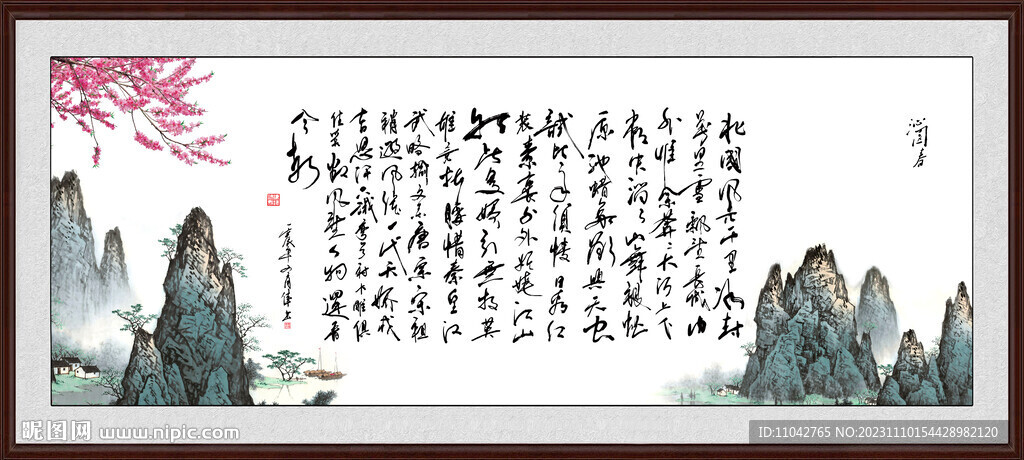 沁园春
北國風光千里冰封
萬里雪飄望長城内
外惟余莽莽大河上下
頓失滔滔山舞銀蛇
原馳蜡象欲與天公
試比高須晴日看红
装素裹分外妖娆江山
如此多嬌引無數英
雄竞折腰惜秦皇汉
武略輸文采唐宗宋祖
稍遜風骚一代天骄成
吉思汗只識彎弓射大雕俱
往矣數風流人物還看
今朝
昵图网 www.nipic.com
ID:11042765 NO:20231110154428982120